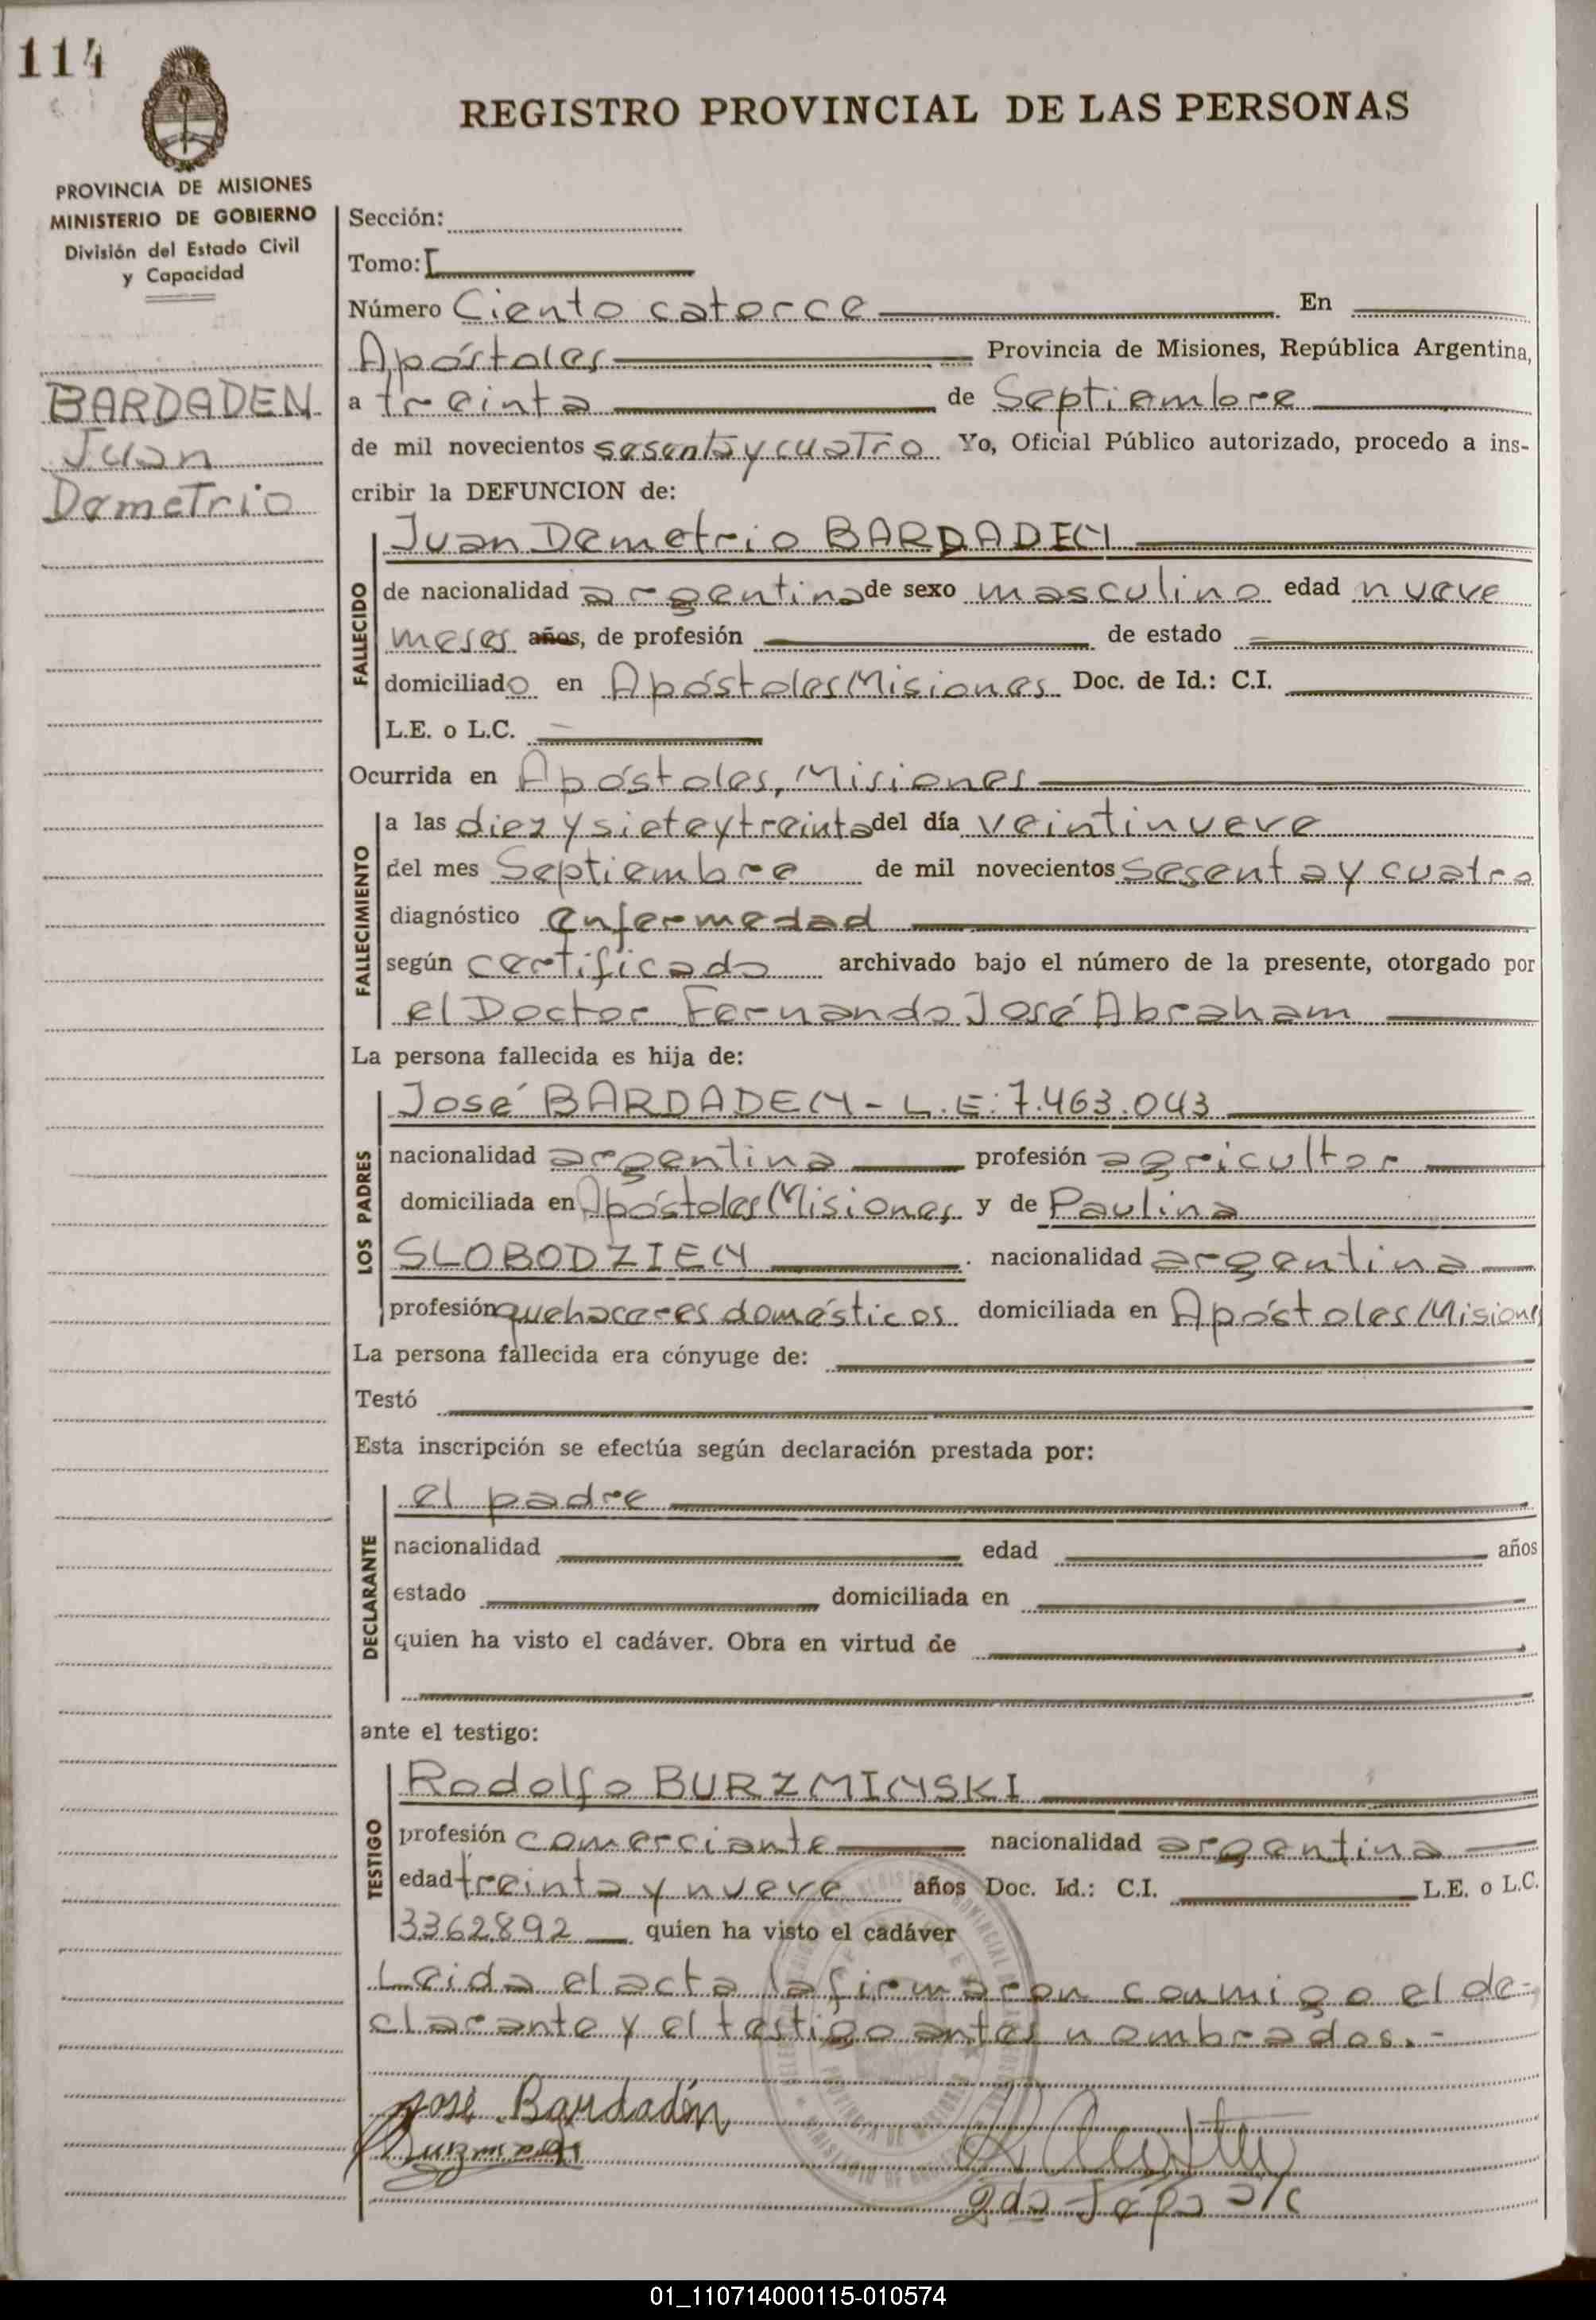 114
REGISTRO PROVINCIAL DE LAS PERSONAS
PROVINCIA DE MISIONES
MINISTERIO DE GOBIERNO
División del Estado Civil
y Capacidad
BARDADEN
Juan
Demetrio
Sección:
Tomo: I
Número Ciento catorce En
Apóstoles Provincia de Misiones, República Argentina,
a treinta de Septiembre
de mil novecientos sesenta y cuatro Yo, Oficial Público autorizado, procedo a ins-
cribir la DEFUNCION de:
FALLECIDO
Juan Demetrio BARDADEN
de nacionalidad argentina de sexo masculino edad nueve
meses años, de profesión de estado
domiciliado en Apóstoles Misiones Doc. de Id.: C.I.
L.E. o L.C.
Ocurrida en Apóstoles, Misiones
FALLECIMIENTO
a las diez y siete y treinta del día veintinueve
del mes Septiembre de mil novecientos sesenta y cuatro
diagnóstico enfermedad
según certificado archivado bajo el número de la presente, otorgado por
el Doctor Fernando José Abraham
La persona fallecida es hija de:
LOS PADRES
José BARDADEN - L.E: 7.463.043
nacionalidad argentina profesión agricultor
domiciliada en Apóstoles Misiones y de Paulina
SLOBODZIEN . nacionalidad argentina
profesión quehaceres domésticos domiciliada en Apóstoles Misiones
La persona fallecida era cónyuge de:
Testó
Esta inscripción se efectúa según declaración prestada por:
DECLARANTE
el padre
nacionalidad edad años
estado domiciliada en
quien ha visto el cadáver. Obra en virtud de
ante el testigo:
TESTIGO
Rodolfo BURZMINSKI
profesión comerciante nacionalidad argentina
edad treinta y nueve años Doc. Id.: C.I. L.E. o L.C.
3362892 quien ha visto el cadáver
Leida el acta la firmaron conmigo el de-
clarante y el testigo antes nombrados.-
José Bardadín
2da Jefa a/c
01_110714000115-010574